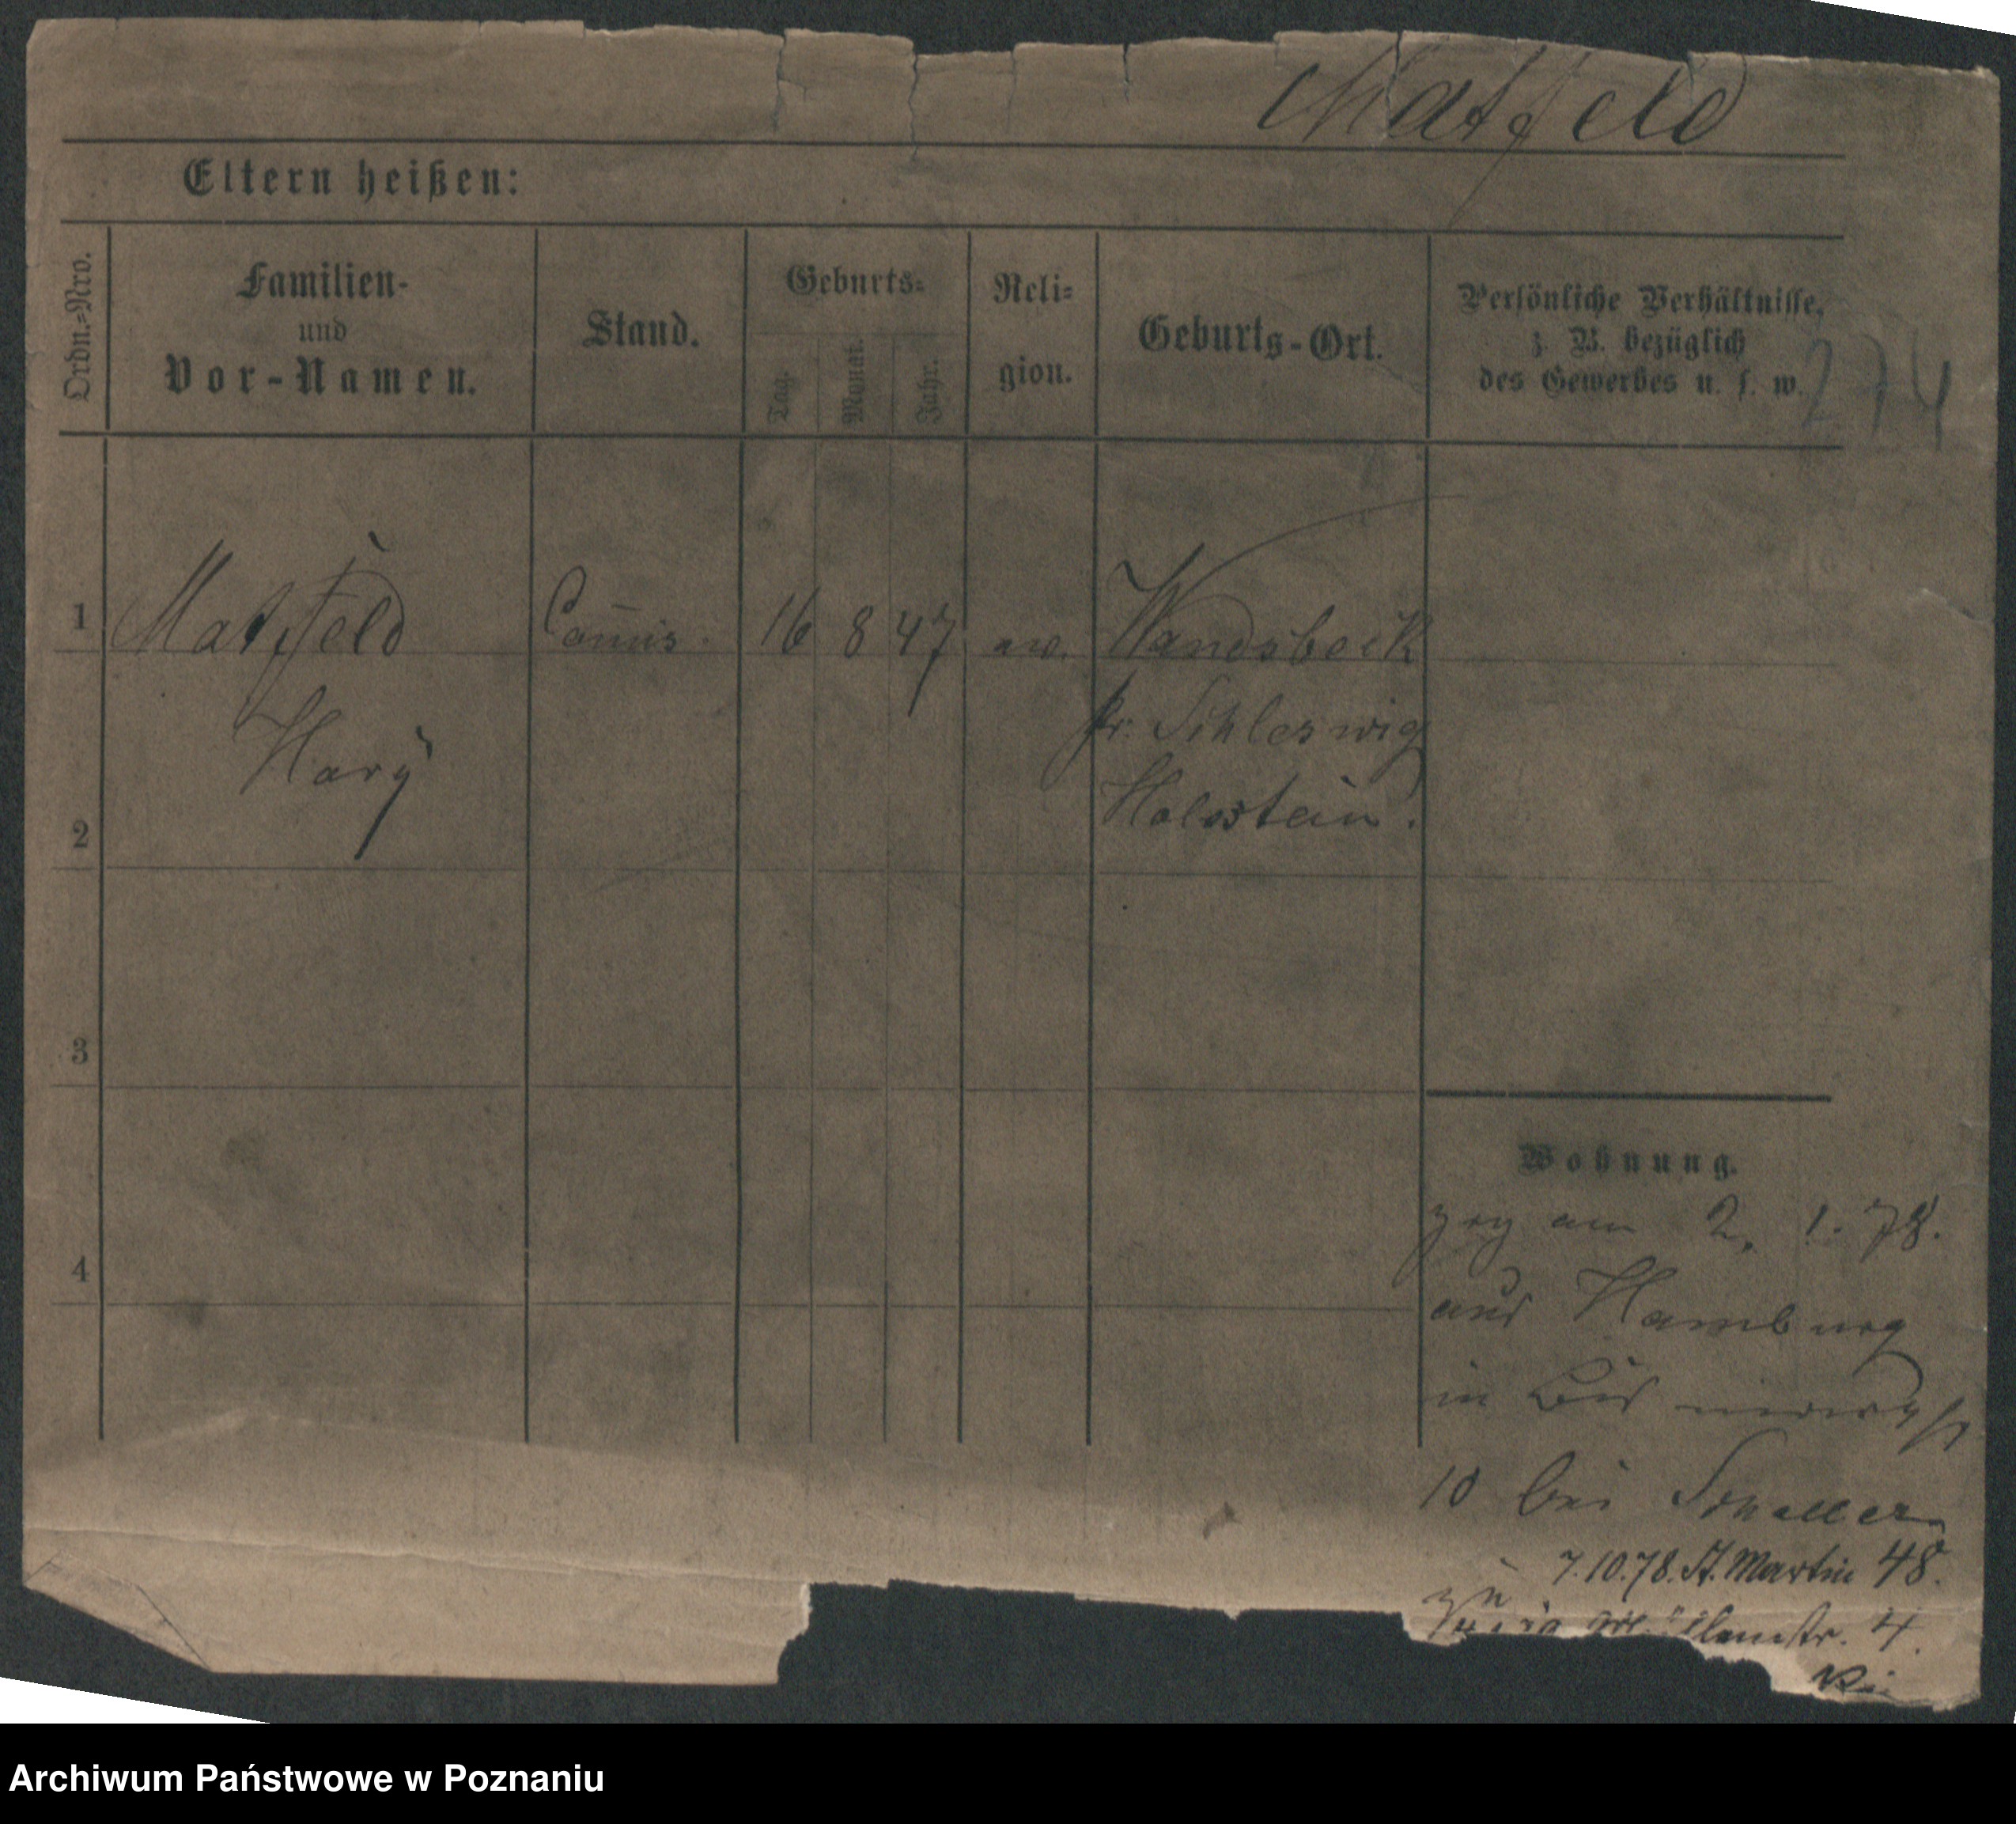 Matfeld
Eltern heißen:
Ordn.=Nro.
Familien-
und
Vor-Namen.
Stand.
Geburts=
Tag.
Monat.
Jahr.
Reli=
gion.
Geburts-Ort.
Persönliche Verhältnisse,
z. B. bezüglich
des Gewerbes u. s. w.
274
1 Matfeld Com̄is. 16 8 47 Wandsbeck
Harÿ
pr. Schleswig
Holsstein.
2
3
4
Wohnung.
zog am 2. 1. 78.
aus Hamburg
in
10 bei Schaller
7.10.78. St. Martin 48.
4.
Archiwum Państwowe w Poznaniu